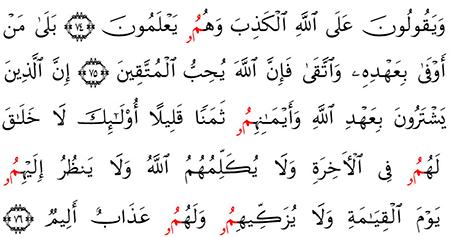 وَيَقُولُونَ عَلَى ٱللَّهِ ٱلْكَذِبَ وَهُمُۥ يَعْلَمُونَ ۝٧٤ بَلَىٰ مَنْ
أَوْفَىٰ بِعَهْدِهِۦ وَٱتَّقَىٰ فَإِنَّ ٱللَّهَ يُحِبُّ ٱلْمُتَّقِينَ ۝٧٥ إِنَّ ٱلَّذِينَ
يَشْتَرُونَ بِعَهْدِ ٱللَّهِ وَأَيْمَـٰنِهِمُۥ ثَمَنًا قَلِيلًا أُو۟لَـٰٓئِكَ لَا خَلَـٰقَ
لَهُمُۥ فِى ٱلْـَٔاخِرَةِ وَلَا يُكَلِّمُهُمُ ٱللَّهُ وَلَا يَنظُرُ إِلَيْهِمُۥ
يَوْمَ ٱلْقِيَـٰمَةِ وَلَا يُزَكِّيهِمُۥ وَلَهُمُۥ عَذَابٌ أَلِيمٌ ۝٧٦